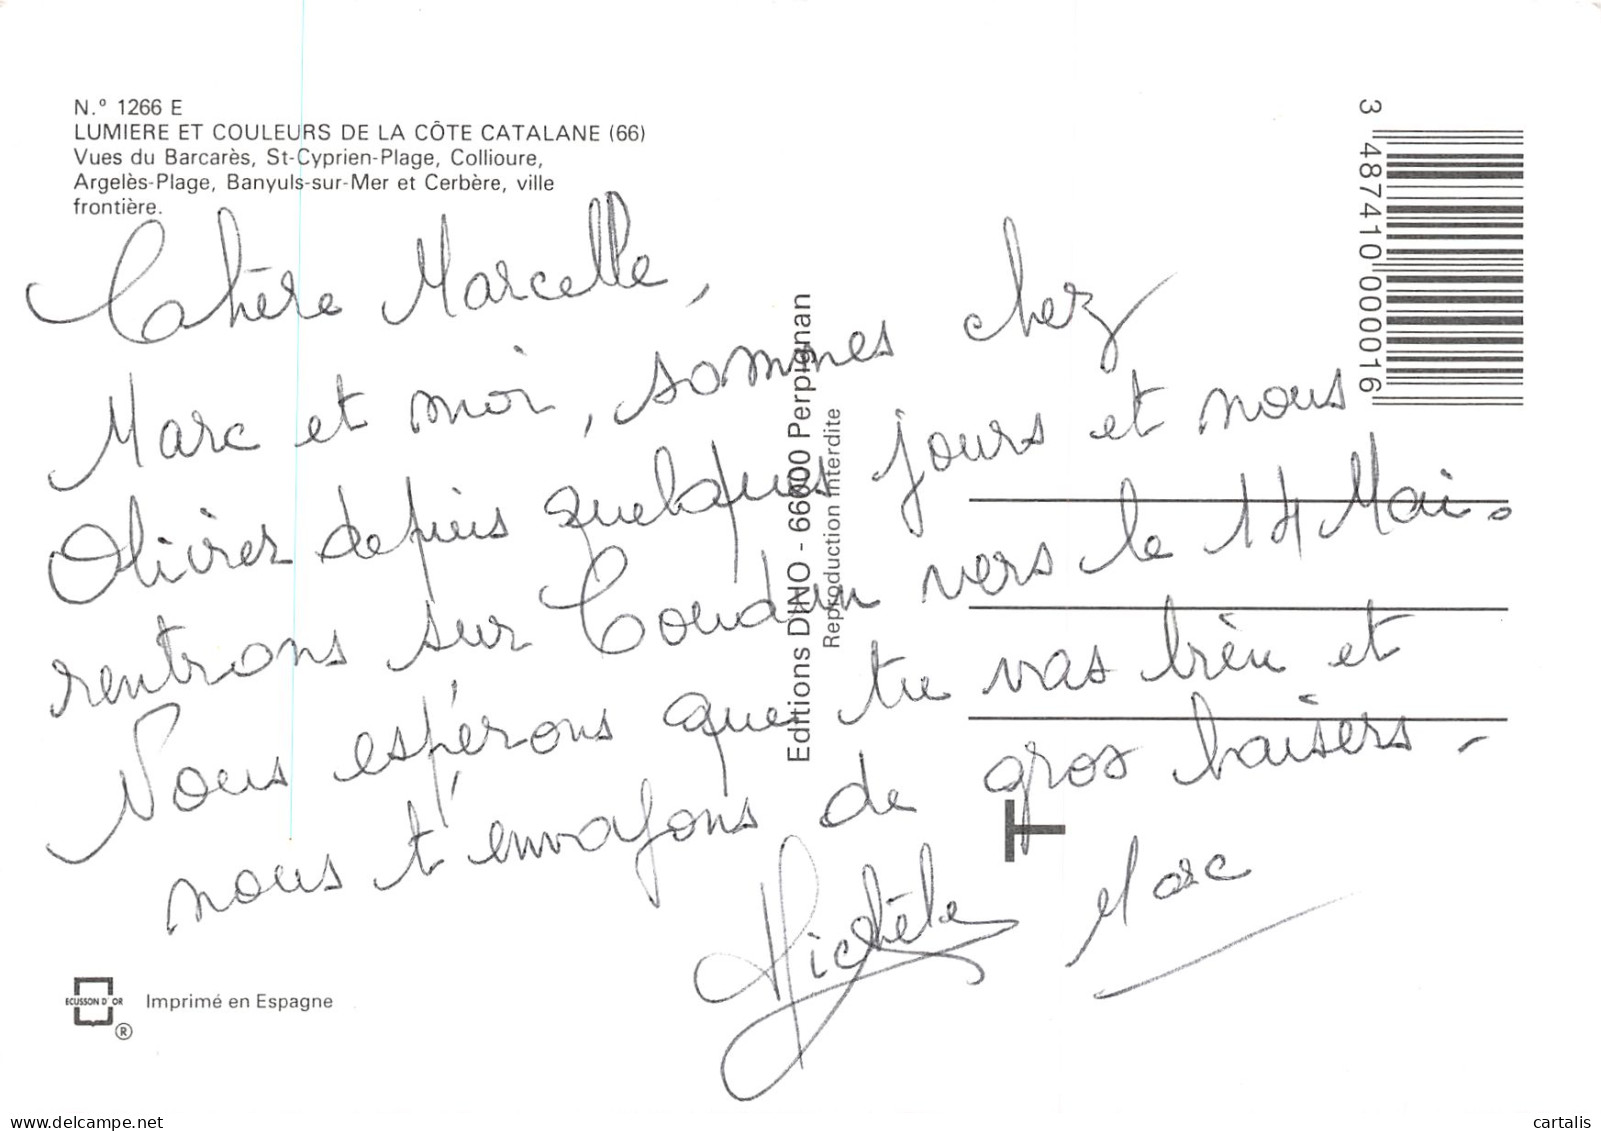 N.º 1266 E
LUMIERE ET COULEURS DE LA CÔTE CATALANE (66)
Vues du Barcarès, St-Cyprien-Plage, Collioure,
Argelès-Plage, Banyuls-sur-Mer et Cerbère, ville
frontière.
Chère Marcelle,
Marc et moi, sommes chez
Olivier depuis quelques jours et nous
rentrons sur Coudun vers le 14 Mai.
Nous espérons que tu vas bien et
nous t'envoyons de gros baisers -
Michèle Marc
Editions DINO - 66000 Perpignan
Reproduction interdite
3 487410 000016
T
ECUSSON D'OR
®
Imprimé en Espagne
www.delcampe.net
cartalis